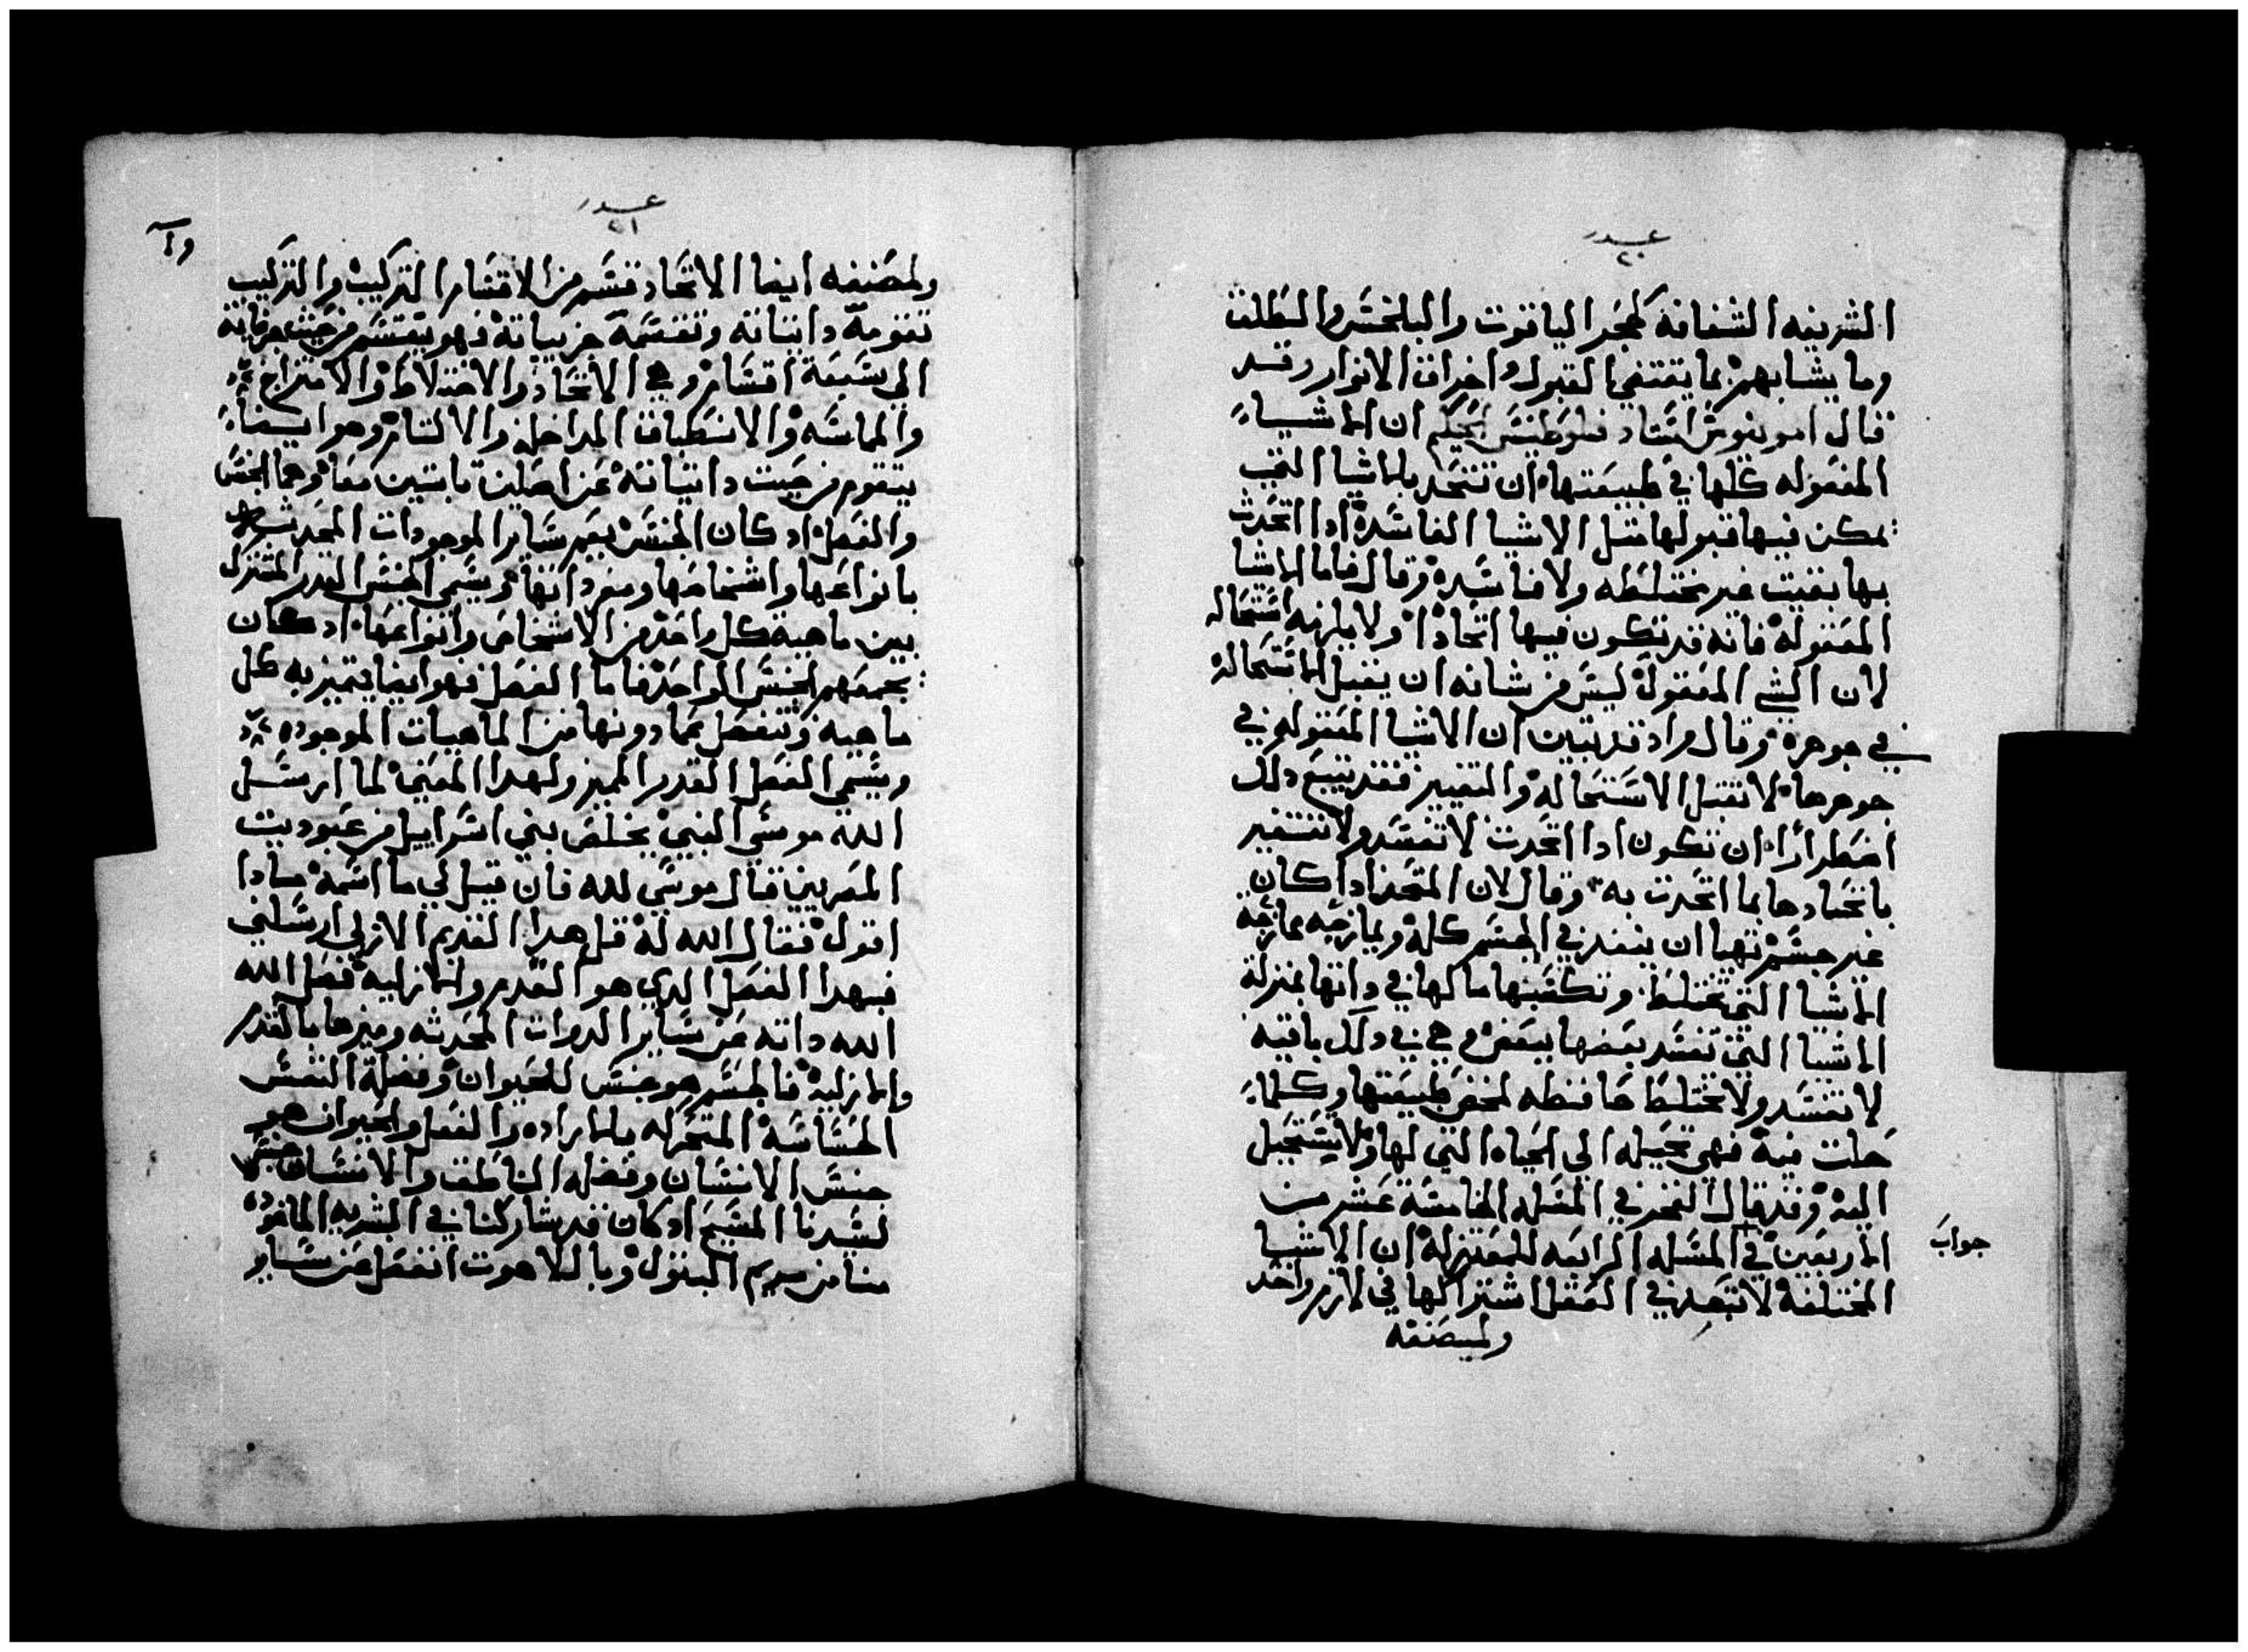 عدد
٢٠
الشريفه الشفافة كحجر الياقوت والبلخش والطلق
وما يشابههم بما يقتضي القبول واخراق الانوار وقد
قال امونيوش استاد فلوطينس الحكيم ان الاشياء
المعقوله كلها في طبيعتها ان تتحد بالاشيا التي
يمكن فيها قبولها مثل الاشيا الفاسدة ادا اتحدت
بها بقيت غير مختلطه ولا فاسدة وقال فاما الاشيا
المعقولة فانه قد تكون فيها اتحادا ولا يلزمه استحاله
لان الشي المعقول ليس من شانه ان يقبل الاستحالة
في جوهرة وقال واد قد تبين ان الاشيا المعقوله في
جوهرها لا تقبل الاستحالة والتغيير فقد يتبع دلك
اضطرارا ان تكون ادا اتحدت لا تفسد ولا تتغير
باتحادها بما اتحدت به وقال لان المتحد ادا كان
غير جسم تهيا ان ينفد في الجسم كله ويمازجه ممازجة
الاشيا التي تختلط وتكتنفها ما لها في داتها بمنزلة
الاشيا التي تفسد بعضها ببعض وهي في دلك باقيه
لا تفسد ولا تختلط حافظه لمحض طبيعتها وكلما
حلت فيه فهي تحيله الي الحياه التي لها ولا يستحيل
اليه وقد قال الفخر في المسله الخامسة عشر من
الاربعين في المسله الرابعه للمعتزلة ان الاشيا
جواب
المختلفة لا تبعد في العقل اشتراكها في لازم واحد
ولمصنفه
عدد
٢١
ولمصنفه ايضا الاتحاد قسم من الاقسام التركيب والتركيب
تقومه داتياته وتقسمه جزيياته فهو يقسم من حيث جزياته
الي سبعة اقسام وهي الاتحاد والاختلاط والامتزاج
والمماسه والانطباق المداخله والالتئام وهو ايضا
يتقوم من حيث داتياته عن اصلين تابتين معا وهما الجنس
والفصل اد كان الجنس يعم ساير الموجودات المحدثه
بانواعها واشخاصها ومفرداتها ويسمي الجنس القدر المشترك
بين ماهية كل واحد من الاشخاص وانواعها اد كان
يجمعهم الجنس الواحد فاما الفصل فهو ايضا يتميز به كل
ماهية وتنفصل عما دونها من الماهيات الموجوده
ويسمي الفصل القدر المميز ولهدا المعني لما ارسل
الله موسي النبي يخلص بني اسراييل من عبوديت
المصريين قال موسي لله فان قيل لي ما اسمه مادا
اقول فقال الله له قل هدا القديم الازلي ارسلني
فبهدا الفصل الدي هو القدم والازليه فصل الله
الله داته عن ساير الدوات المحدثه وميزها بالقدم
والازليه فالجسم هو جنس للحيوان وفصله النفس
الحساسه المتحركه بالاراده والفعل والحيوان هو
جنس الانسان وفصله الناطق والانسان جنس
لسيدنا المسيح اد كان قد شاركنا في البشريه الماخوده
منا من مريم البتول وبالاهوت انفصل عن ساير